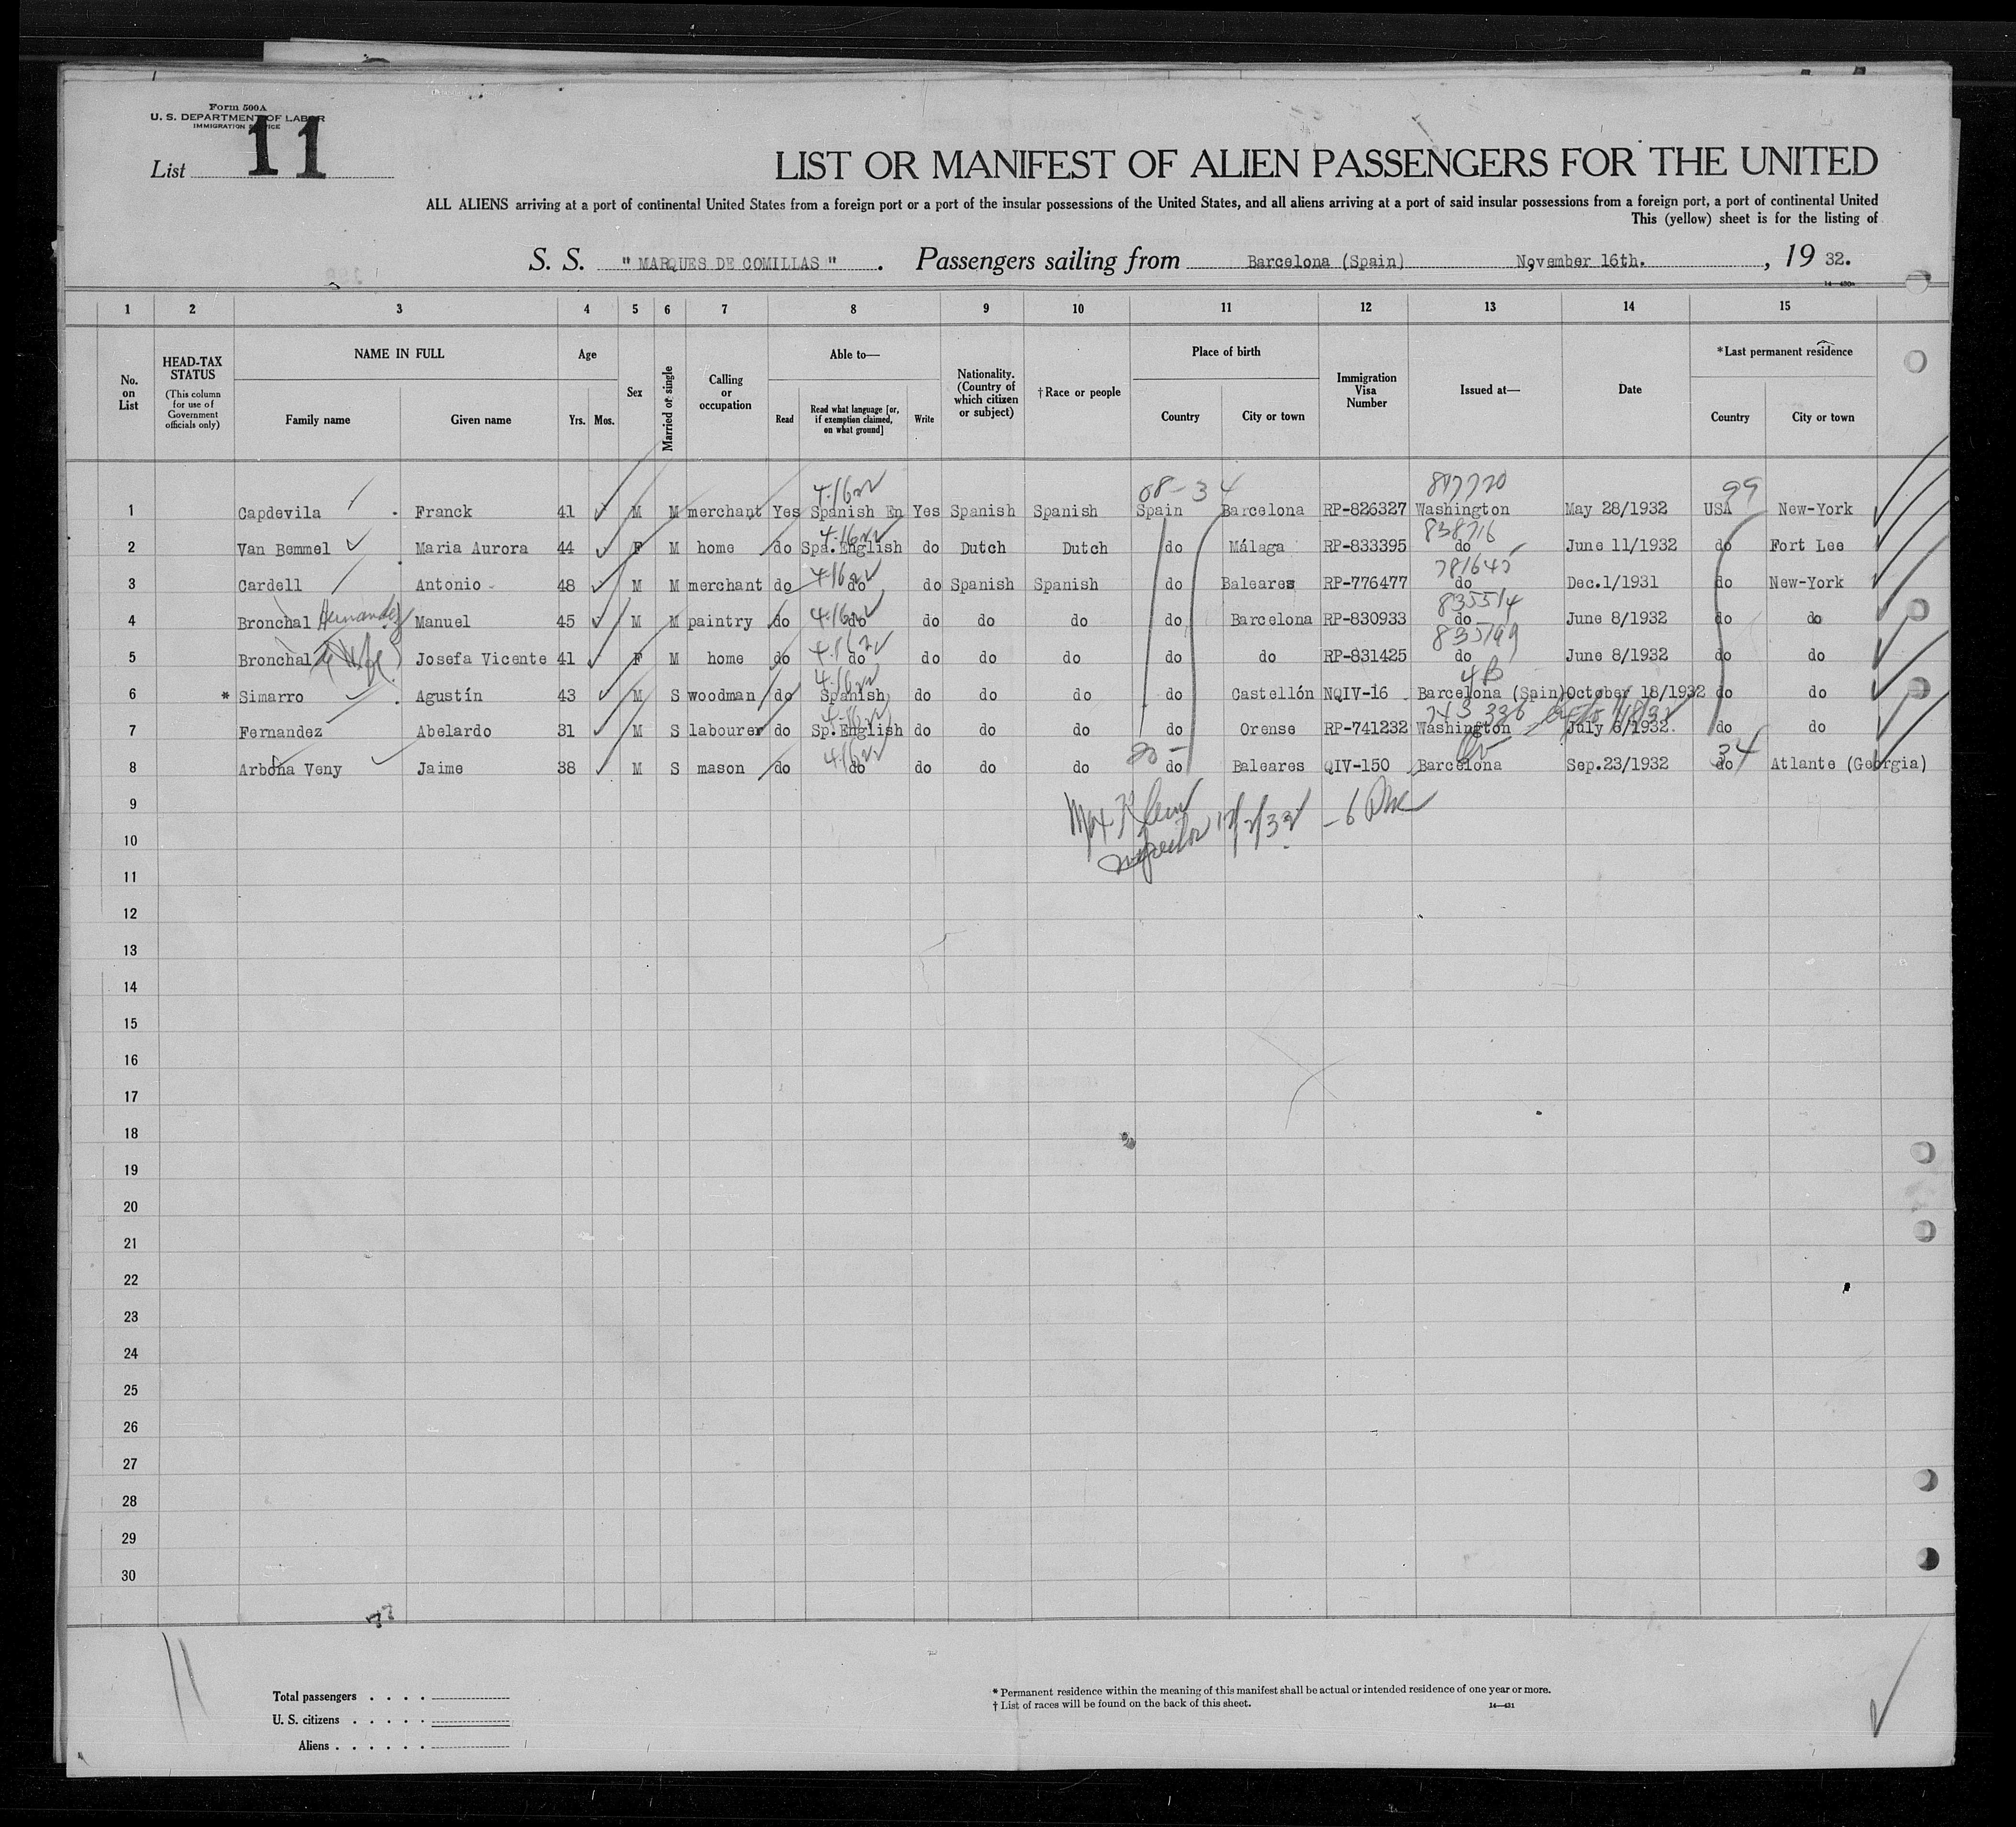 Form 500A
U. S. DEPARTMENT OF LABOR
IMMIGRATION SERVICE
List 11
LIST OR MANIFEST OF ALIEN PASSENGERS FOR THE UNITED
ALL ALIENS arriving at a port of continental United States from a foreign port or a port of the insular possessions of the United States, and all aliens arriving at a port of said insular possessions from a foreign port, a port of continental United
This (yellow) sheet is for the listing of
S. S. " MARQUES DE COMILLAS " . Passengers sailing from Barcelona (Spain) November 16th. , 19 32.
14—430a
1 2 3 4 5 6 7 8 9 10 11 12 13 14 15
No. on List
HEAD-TAX STATUS (This column for use of Government officials only)
NAME IN FULL Family name Given name
Age Yrs. Mos.
Sex
Married or single
Calling or occupation
Able to— Read Read what language [or, if exemption claimed, on what ground] Write
Nationality. (Country of which citizen or subject)
† Race or people
Place of birth Country City or town
Immigration Visa Number
Issued at—
Date
* Last permanent residence Country City or town
4-1622 08-34 99
1 Capdevila Franck 41 M M merchant Yes Spanish En Yes Spanish Spanish Spain Barcelona RP-826327 Washington May 28/1932 USA New-York
4-1622 838716
2 Van Bemmel Maria Aurora 44 F M home do Spa.English do Dutch Dutch do Málaga RP-833395 do June 11/1932 do Fort Lee
4-1622 781645
3 Cardell Antonio 48 M M merchant do do do Spanish Spanish do Baleares RP-776477 do Dec.1/1931 do New-York
4-1622 835514
4 Bronchal Hernandez Manuel 45 M M paintry do do do do do do Barcelona RP-830933 do June 8/1932 do do
4-1622
5 Bronchal Josefa Vicente 41 F M home do do do do do do do RP-831425 do June 8/1932 do do
4-1622 4B
6 * Simarro Agustín 43 M S woodman do Spanish do do do do Castellón NQIV-16 Barcelona (Spain) October 18/1932 do do
4-1622 743 336
7 Fernandez Abelardo 31 M S labourer do Sp.English do do do do Orense RP-741232 Washington July 6/1932. do do
4-1622 34
8 Arbona Veny Jaime 38 M S mason do do do do do do Baleares QIV-150 Barcelona Sep.23/1932 do Atlante (Georgia)
9
Max Klein
10
Inspector
11
12
13
14
15
16
17
18
19
20
21
22
23
24
25
26
27
28
29
30
77
Total passengers . . . .
U. S. citizens . . . . .
Aliens . . . . . .
* Permanent residence within the meaning of this manifest shall be actual or intended residence of one year or more.
† List of races will be found on the back of this sheet.
14—431